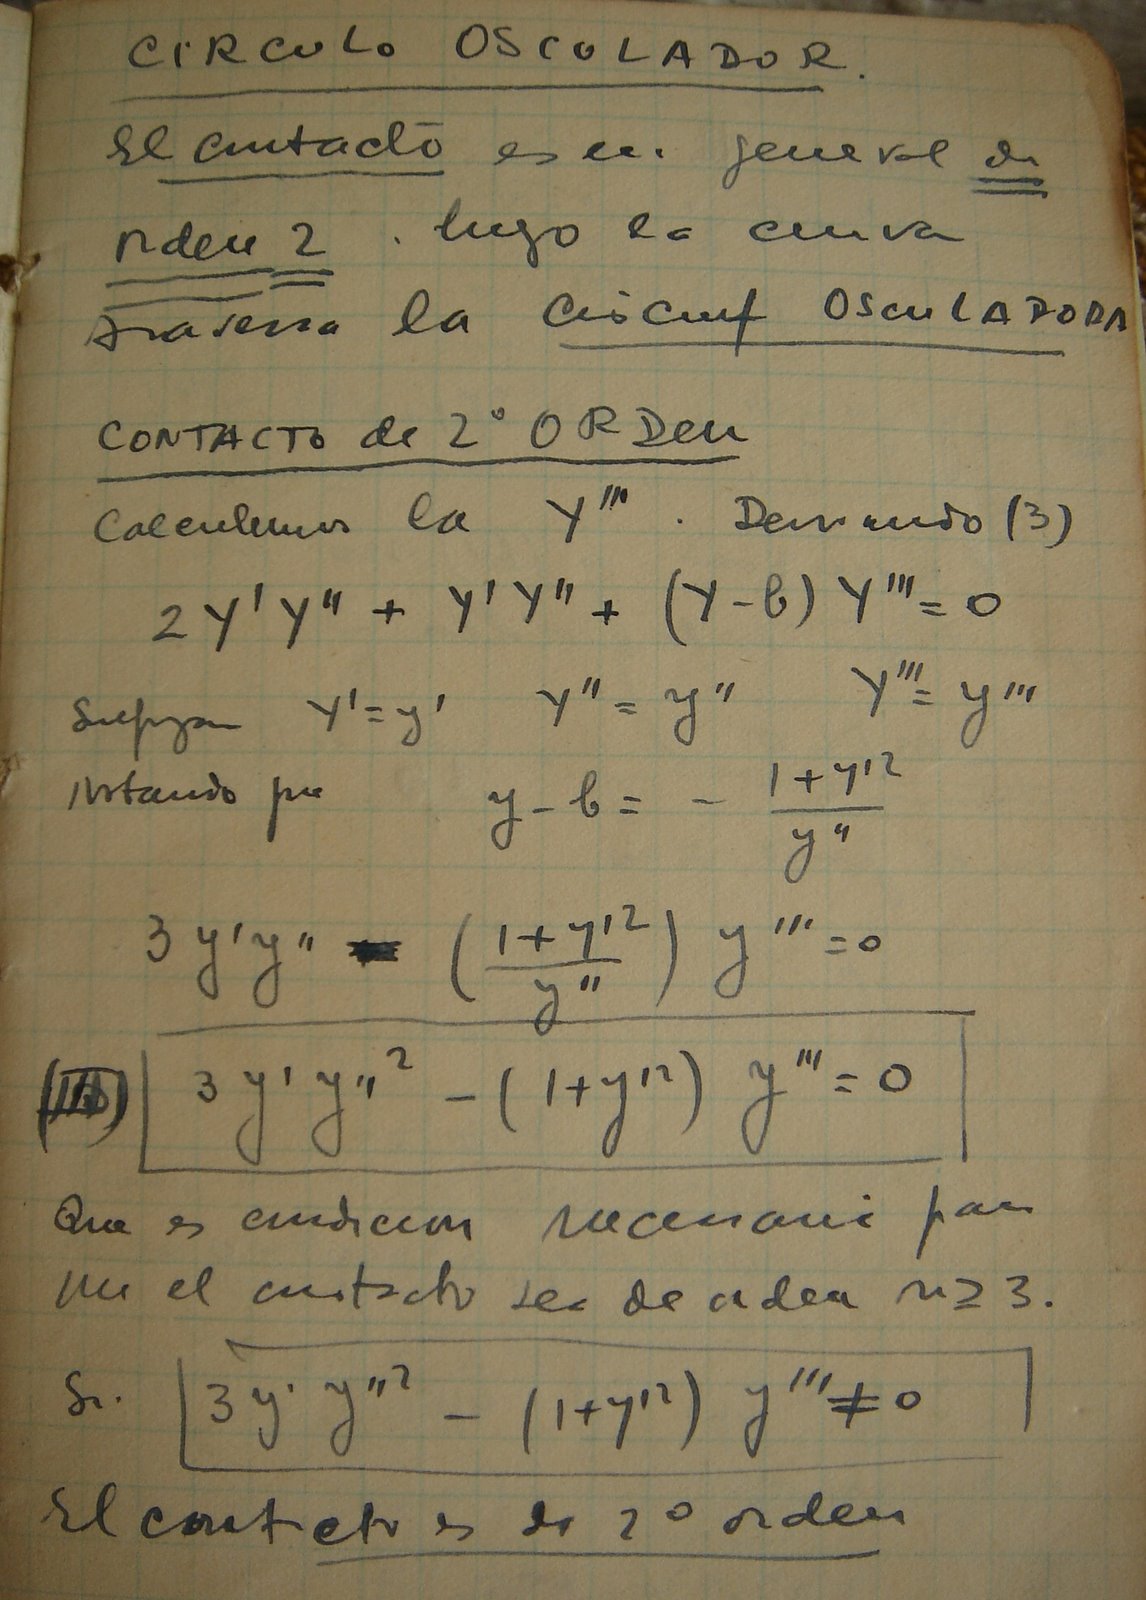 CIRCULO OSCULADOR.
El contacto es en general de
orden 2. luego la curva
traviesa la circunf OSCULADORA
CONTACTO de 2º ORDEN
Calculemos la Y'''. Derivando (3)
2Y'Y'' + Y'Y'' + (Y-b)Y''' = 0
Y' = y' Y'' = y'' Y''' = y'''
Notando que y - b = - (1+y'²)/y''
3y'y'' - ((1+y'²)/y'') y''' = 0
3y'y''² - (1+y'²) y''' = 0
Que es condicion necesaria para
que el contacto sea de orden n ≥ 3.
Si. 3y'y''² - (1+y'²) y''' ≠ 0
El contacto es de 2º orden